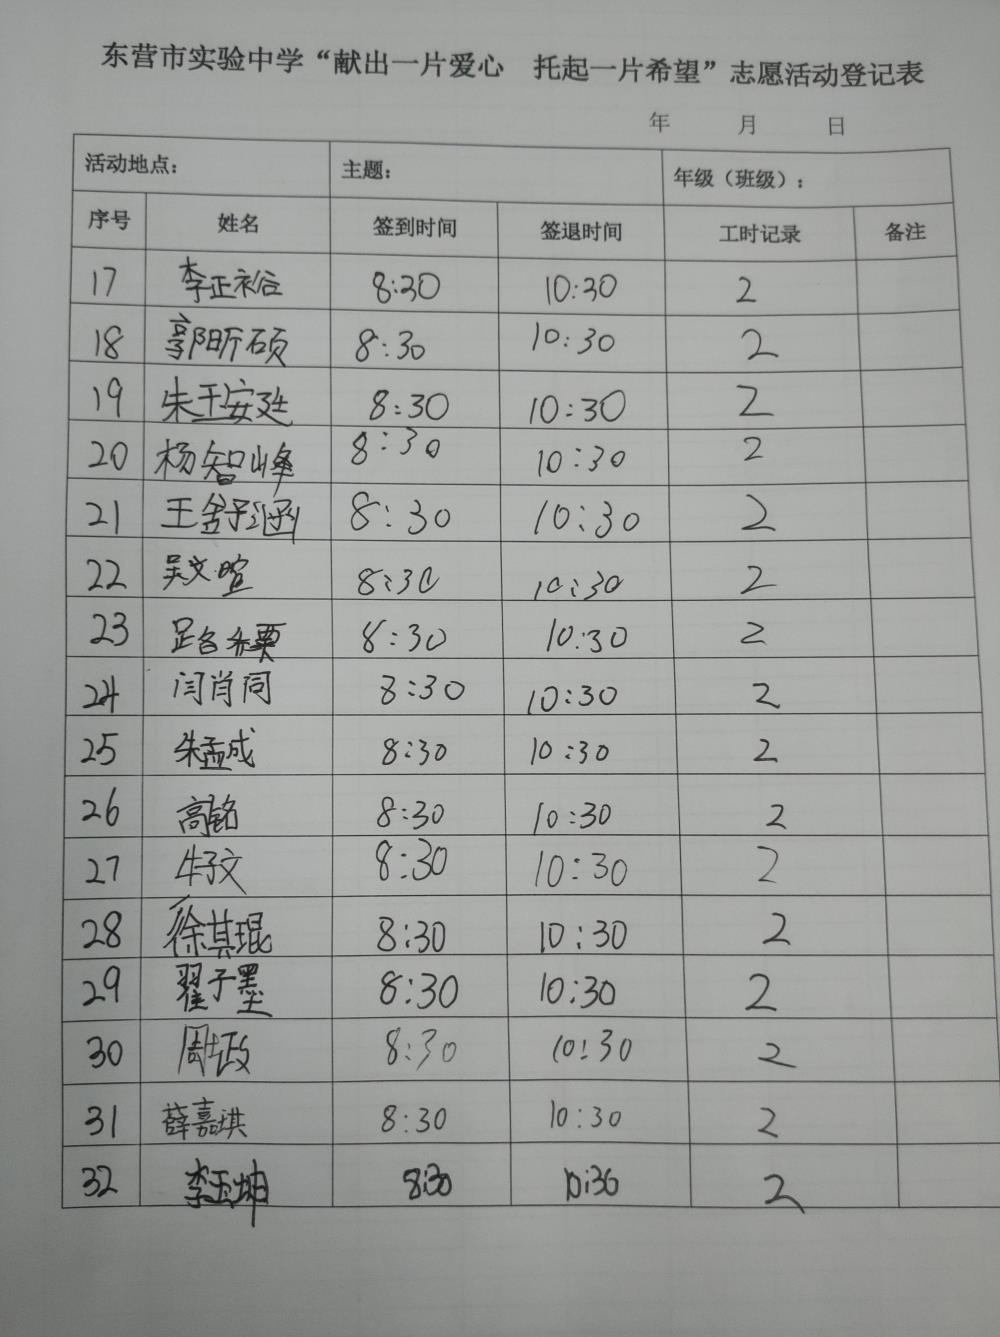 东营市实验中学“献出一片爱心 托起一片希望”志愿活动登记表
年 月 日
活动地点： 主题： 年级（班级）：
序号 姓名 签到时间 签退时间 工时记录 备注
17 李正裕 8:30 10:30 2
18 郭昕硕 8:30 10:30 2
19 朱王安廷 8:30 10:30 2
20 杨智峰 8:30 10:30 2
21 王舒涵 8:30 10:30 2
22 吴文暄 8:30 10:30 2
23 8:30 10:30 2
24 闫肖同 8:30 10:30 2
25 朱孟成 8:30 10:30 2
26 高铭 8:30 10:30 2
27 牛子文 8:30 10:30 2
28 徐其琨 8:30 10:30 2
29 翟子墨 8:30 10:30 2
30 8:30 10:30 2
31 薛嘉琪 8:30 10:30 2
32 李玉坤 8:30 10:30 2